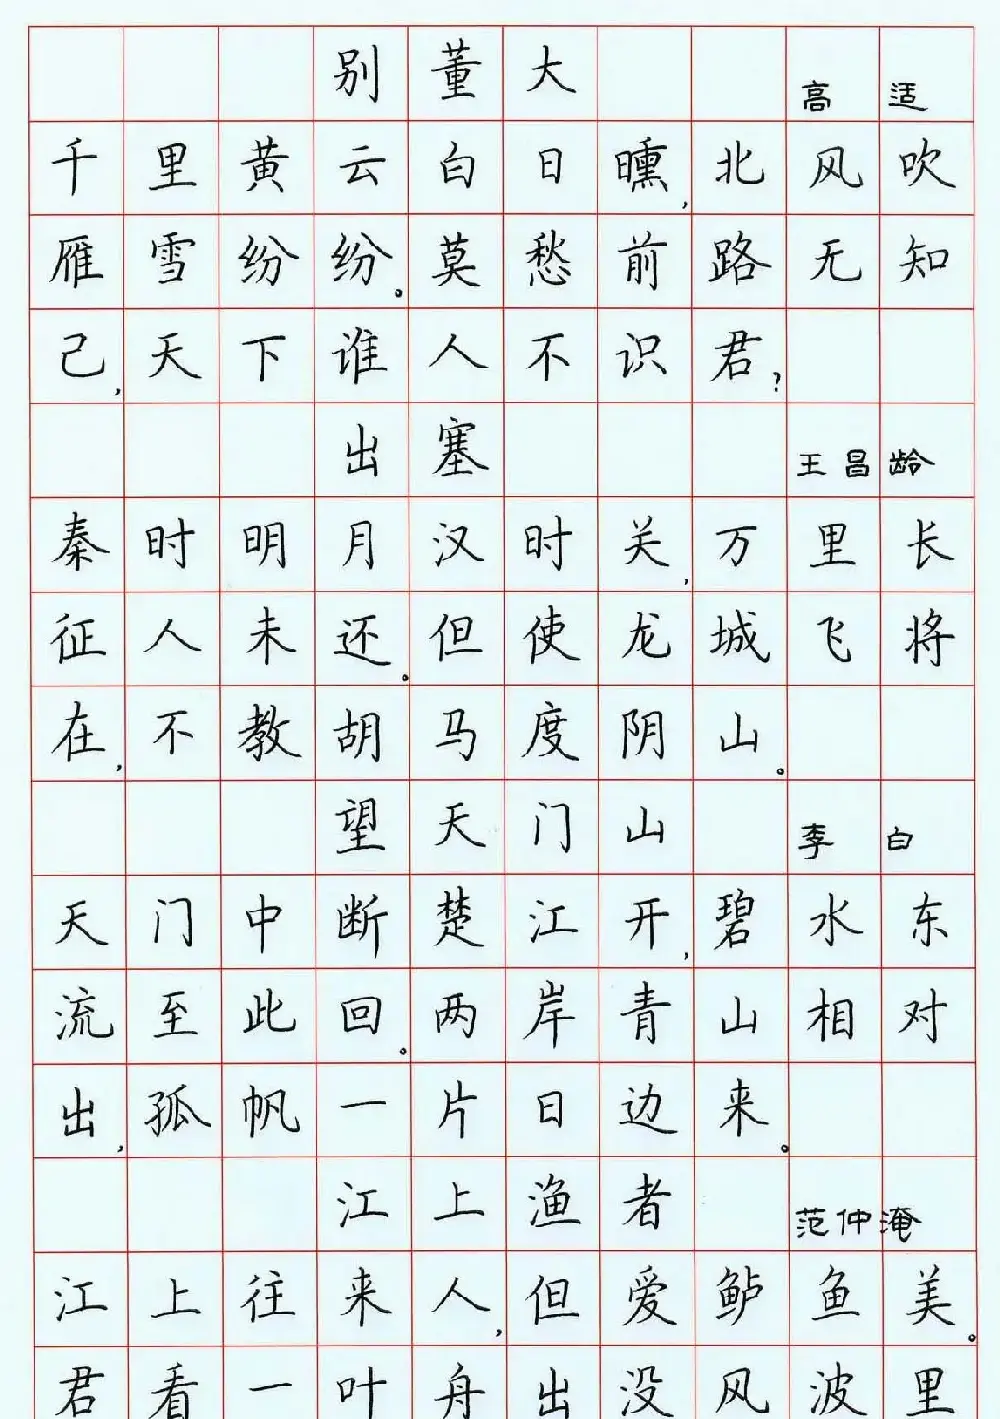 别董大 高适
千里黄云白日曛,北风吹
雁雪纷纷。莫愁前路无知
己,天下谁人不识君?
出塞 王昌龄
秦时明月汉时关,万里长
征人未还。但使龙城飞将
在,不教胡马度阴山。
望天门山 李白
天门中断楚江开,碧水东
流至此回。两岸青山相对
出,孤帆一片日边来。
江上渔者 范仲淹
江上往来人,但爱鲈鱼美。
君看一叶舟出没风波里